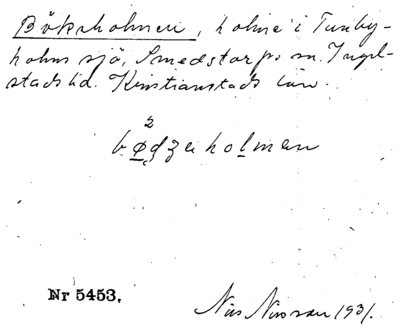 Bökeholmen, holme i Tunby-
holms sjö, Smedstorps sn. Ingel-
stads hd. Kristianstads län.
2
Nr 5453.
Nils Nilsson 1931.